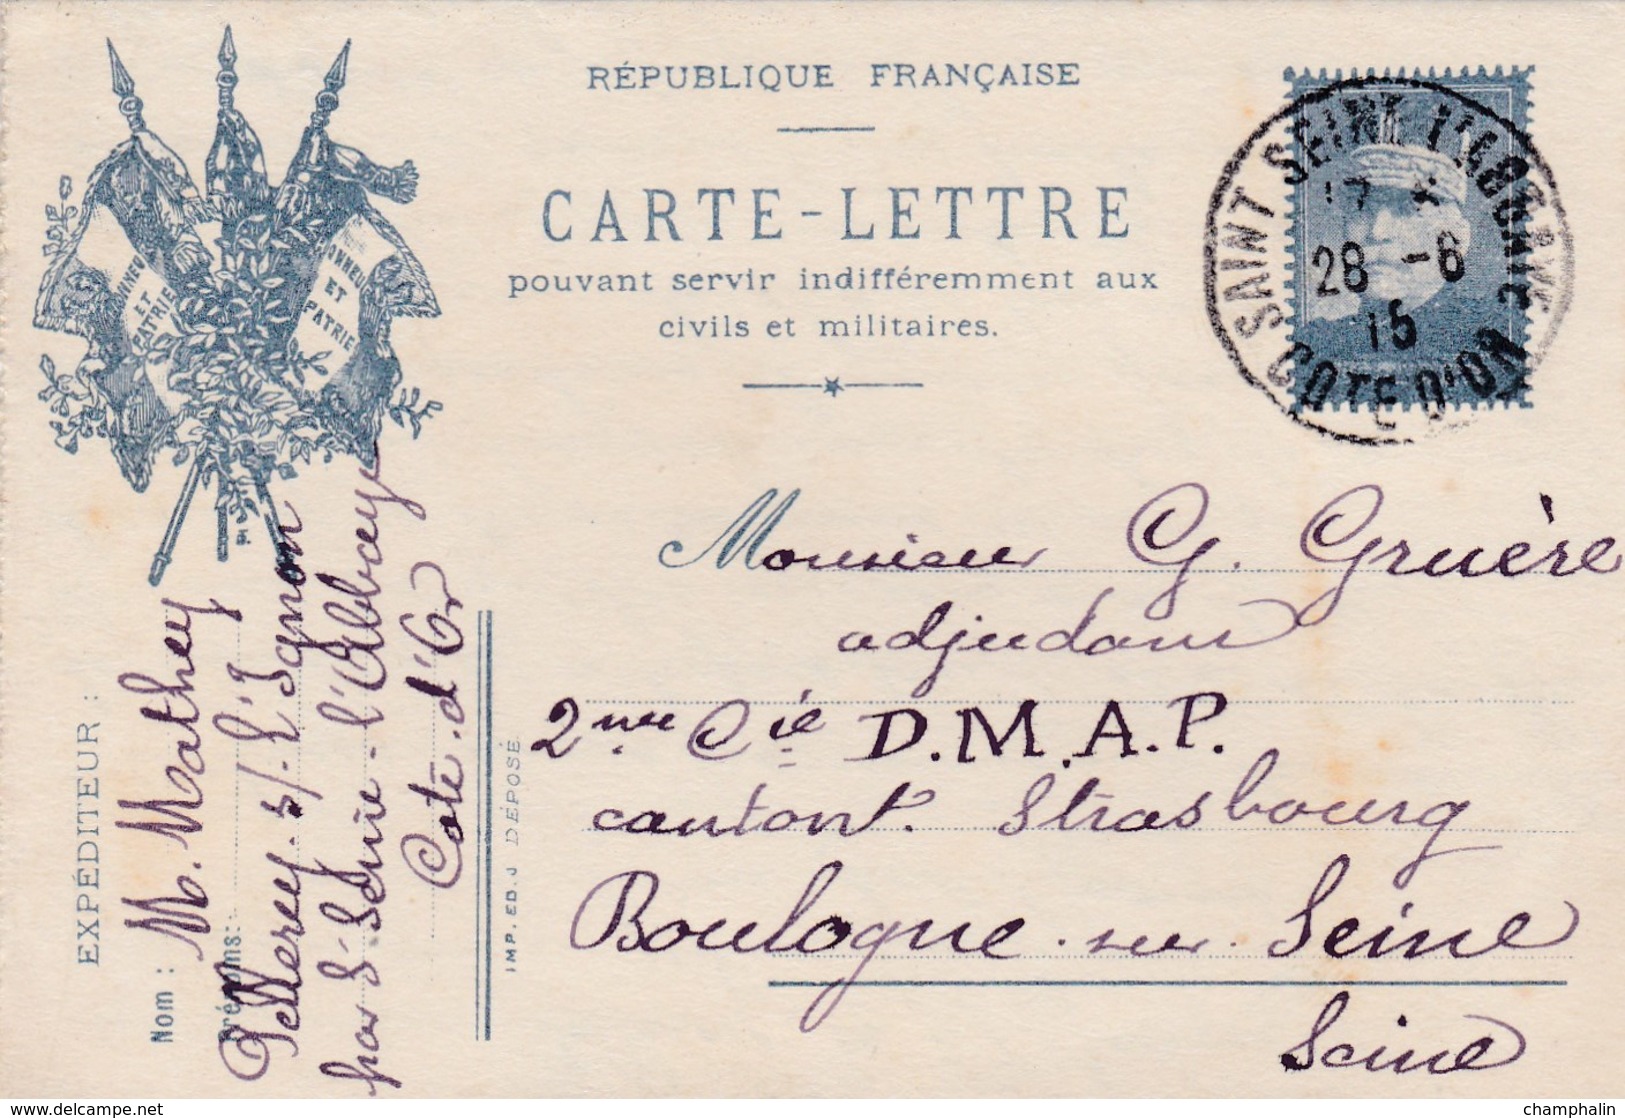 RÉPUBLIQUE FRANÇAISE
CARTE-LETTRE
pouvant servir indifféremment aux
civils et militaires.
HONNEUR
ET
PATRIE
HONNEUR
ET
PATRIE
SAINT SEINE L'ABBAYE
17
28 -6
15
COTE D'OR
Monsieur G. Gruère
adjudant
2me Cie D.M.A.P.
cantont. Strasbourg
Boulogne-sur-Seine
Seine
EXPÉDITEUR :
Nom : M. Mathey
Prénoms: Pellerey. s/. l'Ignon
par St Seine-l'Abbaye
Cote.d'Or
IMP. ED. J DÉPOSÉ
www.delcampe.net
champhalin